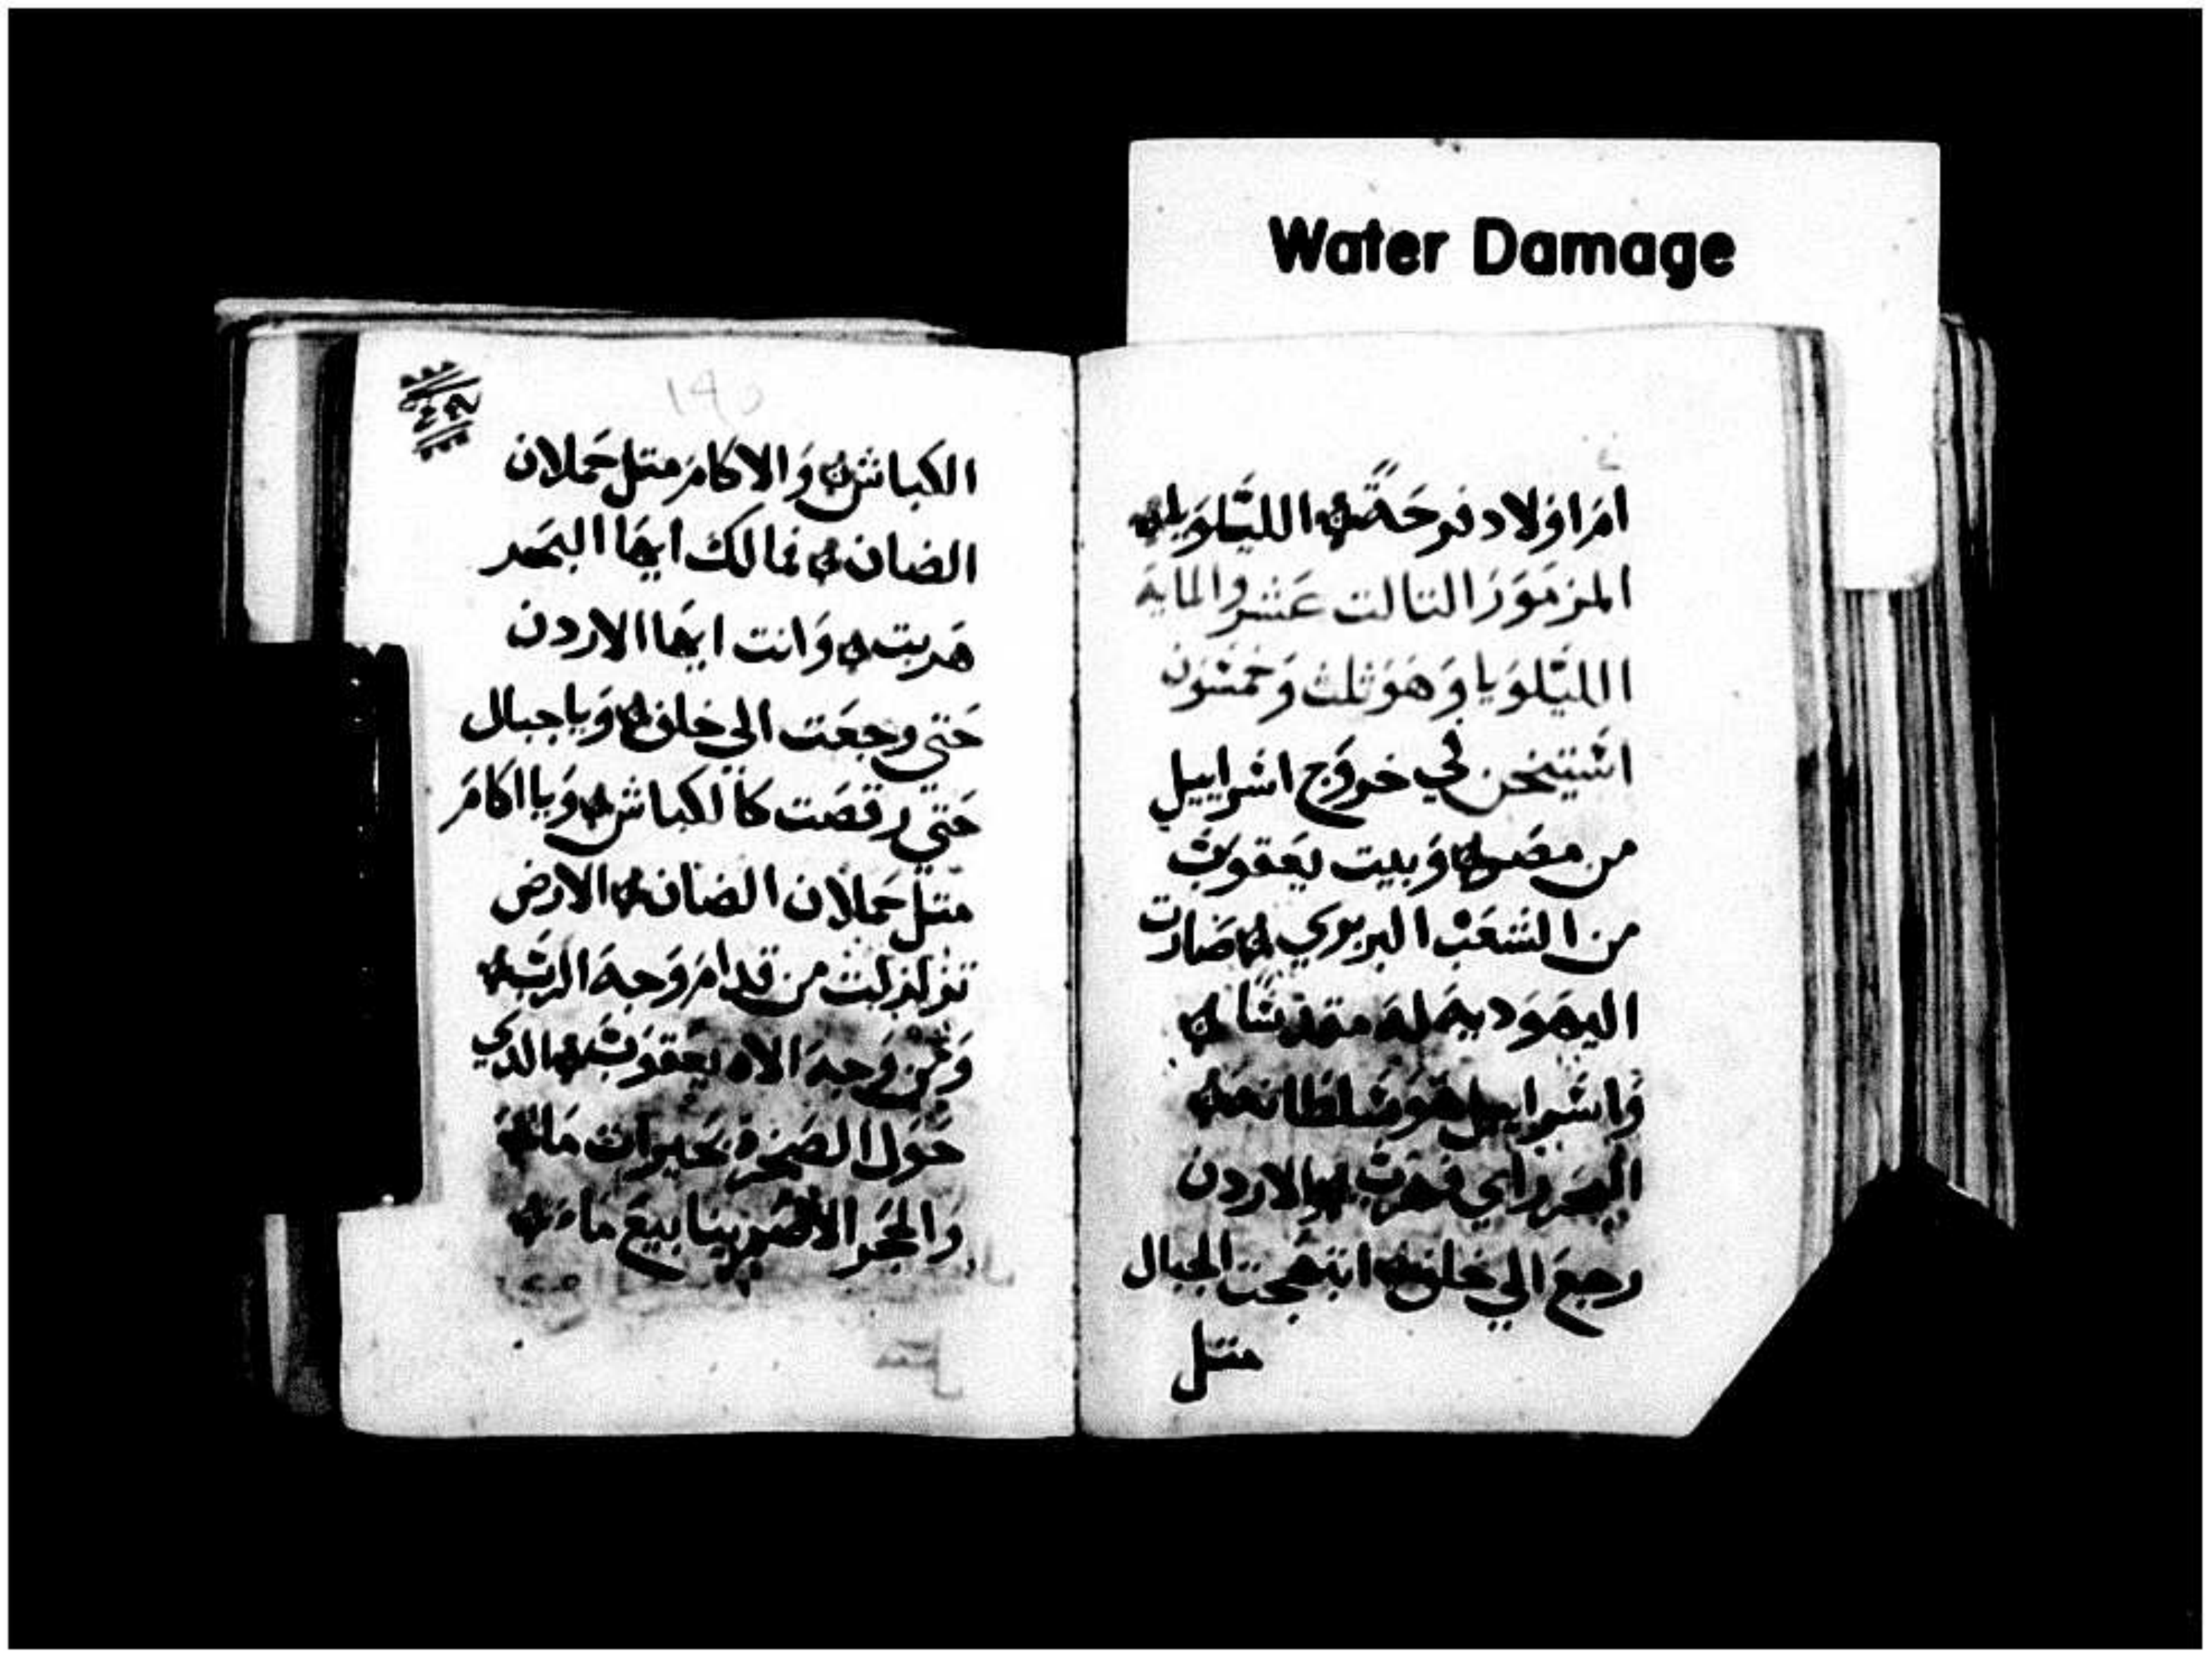 Water Damage
ام اولاد فرحة الليلويا
المزمور التالت عشر والمايه
الليلويا وهو تلت وخمسون
استيخن في خروج اسراييل
من مصر وبيت يعقوب
من الشعب البربري لما صارت
اليهوديه له مقدسا
واسراييل هو سلطانه
البحر راي فهرب والاردن
رجع الي خلف ابتهجت الجبال
متل
١٩٥
الكباش والاكام متل حملان
الضان فما لك ايها البحر
هربت وانت ايها الاردن
حتي رجعت الي خلف ويا جبال
حتي رقصت كالكباش ويا اكام
متل حملان الضان الارض
تزلزلت من قدام وجه الرب
ومن وجه الاه يعقوب الدي
حول الصخره بحيرات ماء
والحجر الاصم ينابيع ماء